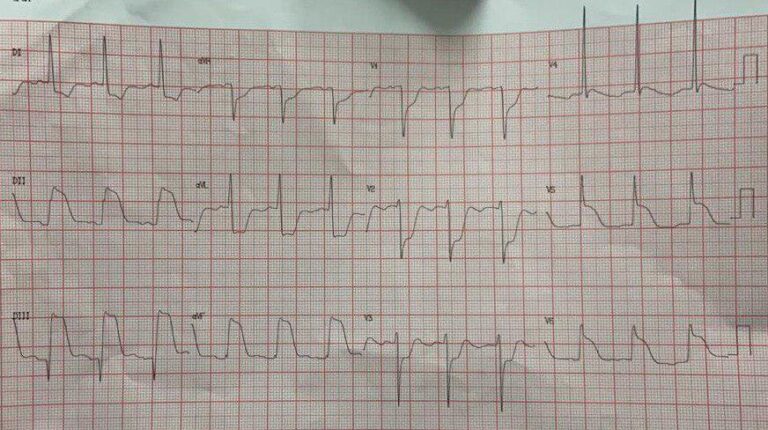 DI
aVR
V1
V4
DII
aVL
V2
V5
DIII
aVF
V3
V6